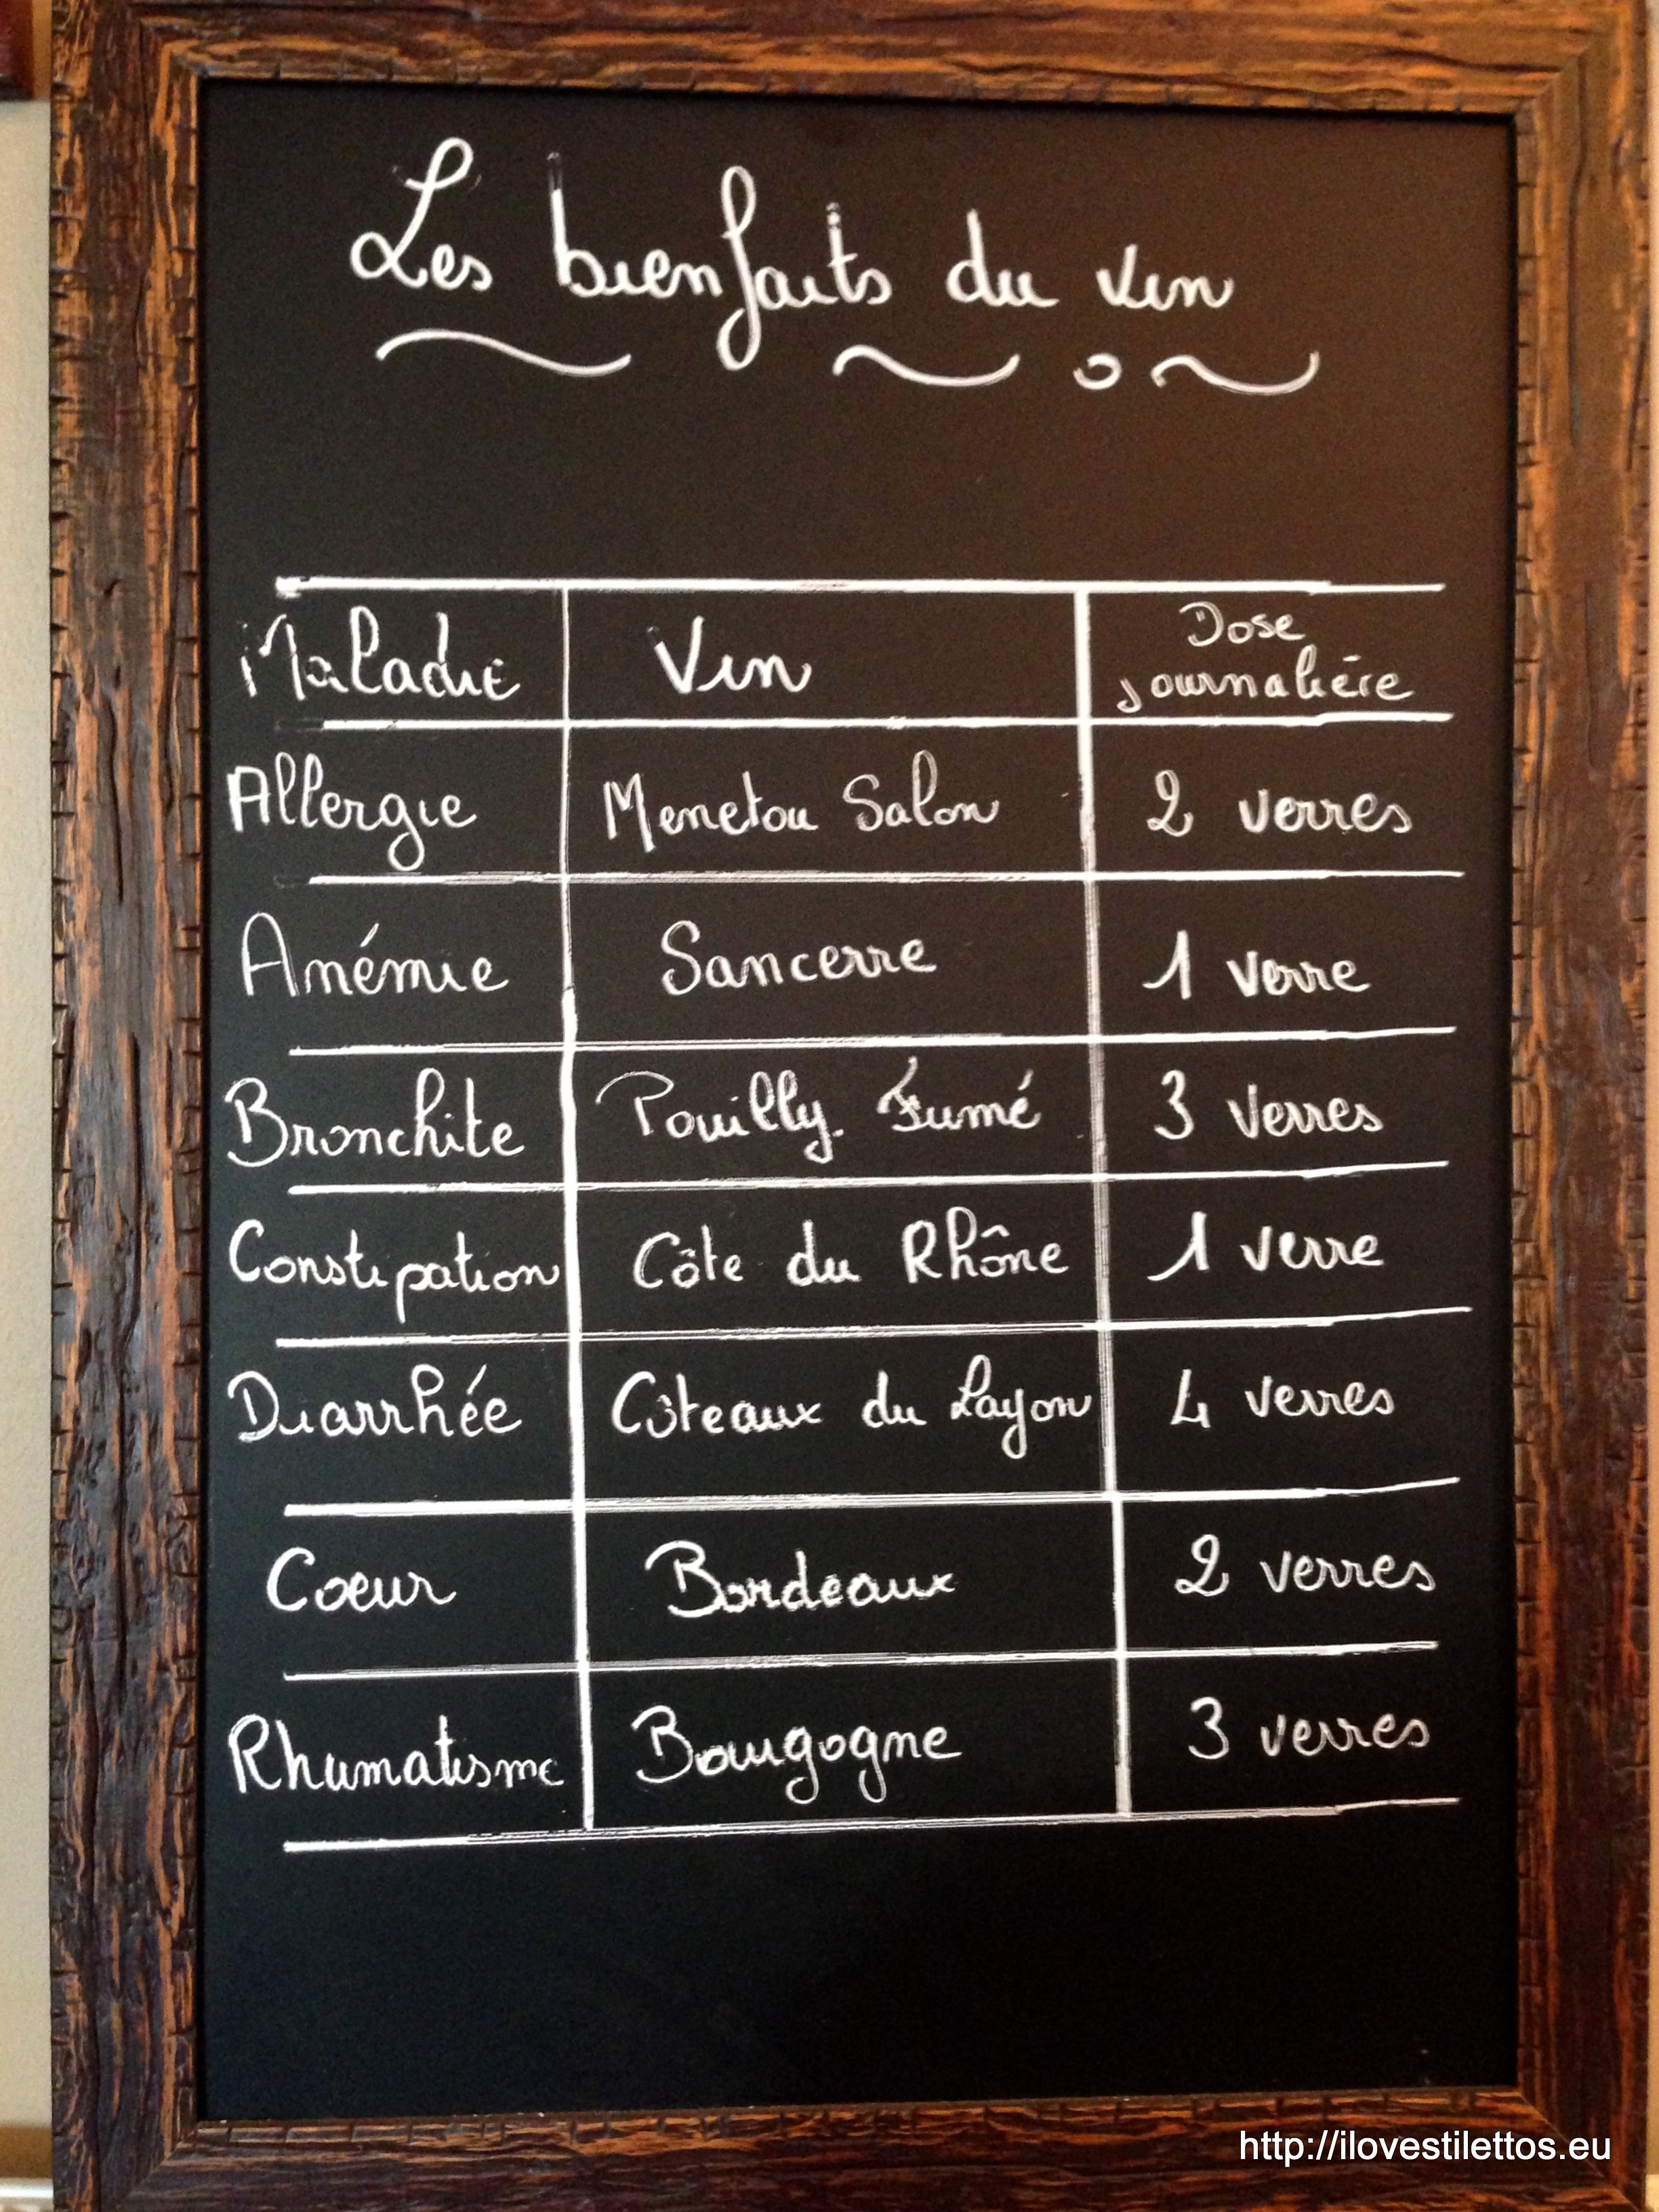 Les bienfaits du vin
Maladie Vin Dose journalière
Allergie Menetou Salon 2 verres
Anémie Sancerre 1 verre
Bronchite Pouilly-Fumé 3 verres
Constipation Côte du Rhône 1 verre
Diarrhée Côteaux du Layon 4 verres
Coeur Bordeaux 2 verres
Rhumatisme Bourgogne 3 verres
http://ilovestilettos.eu